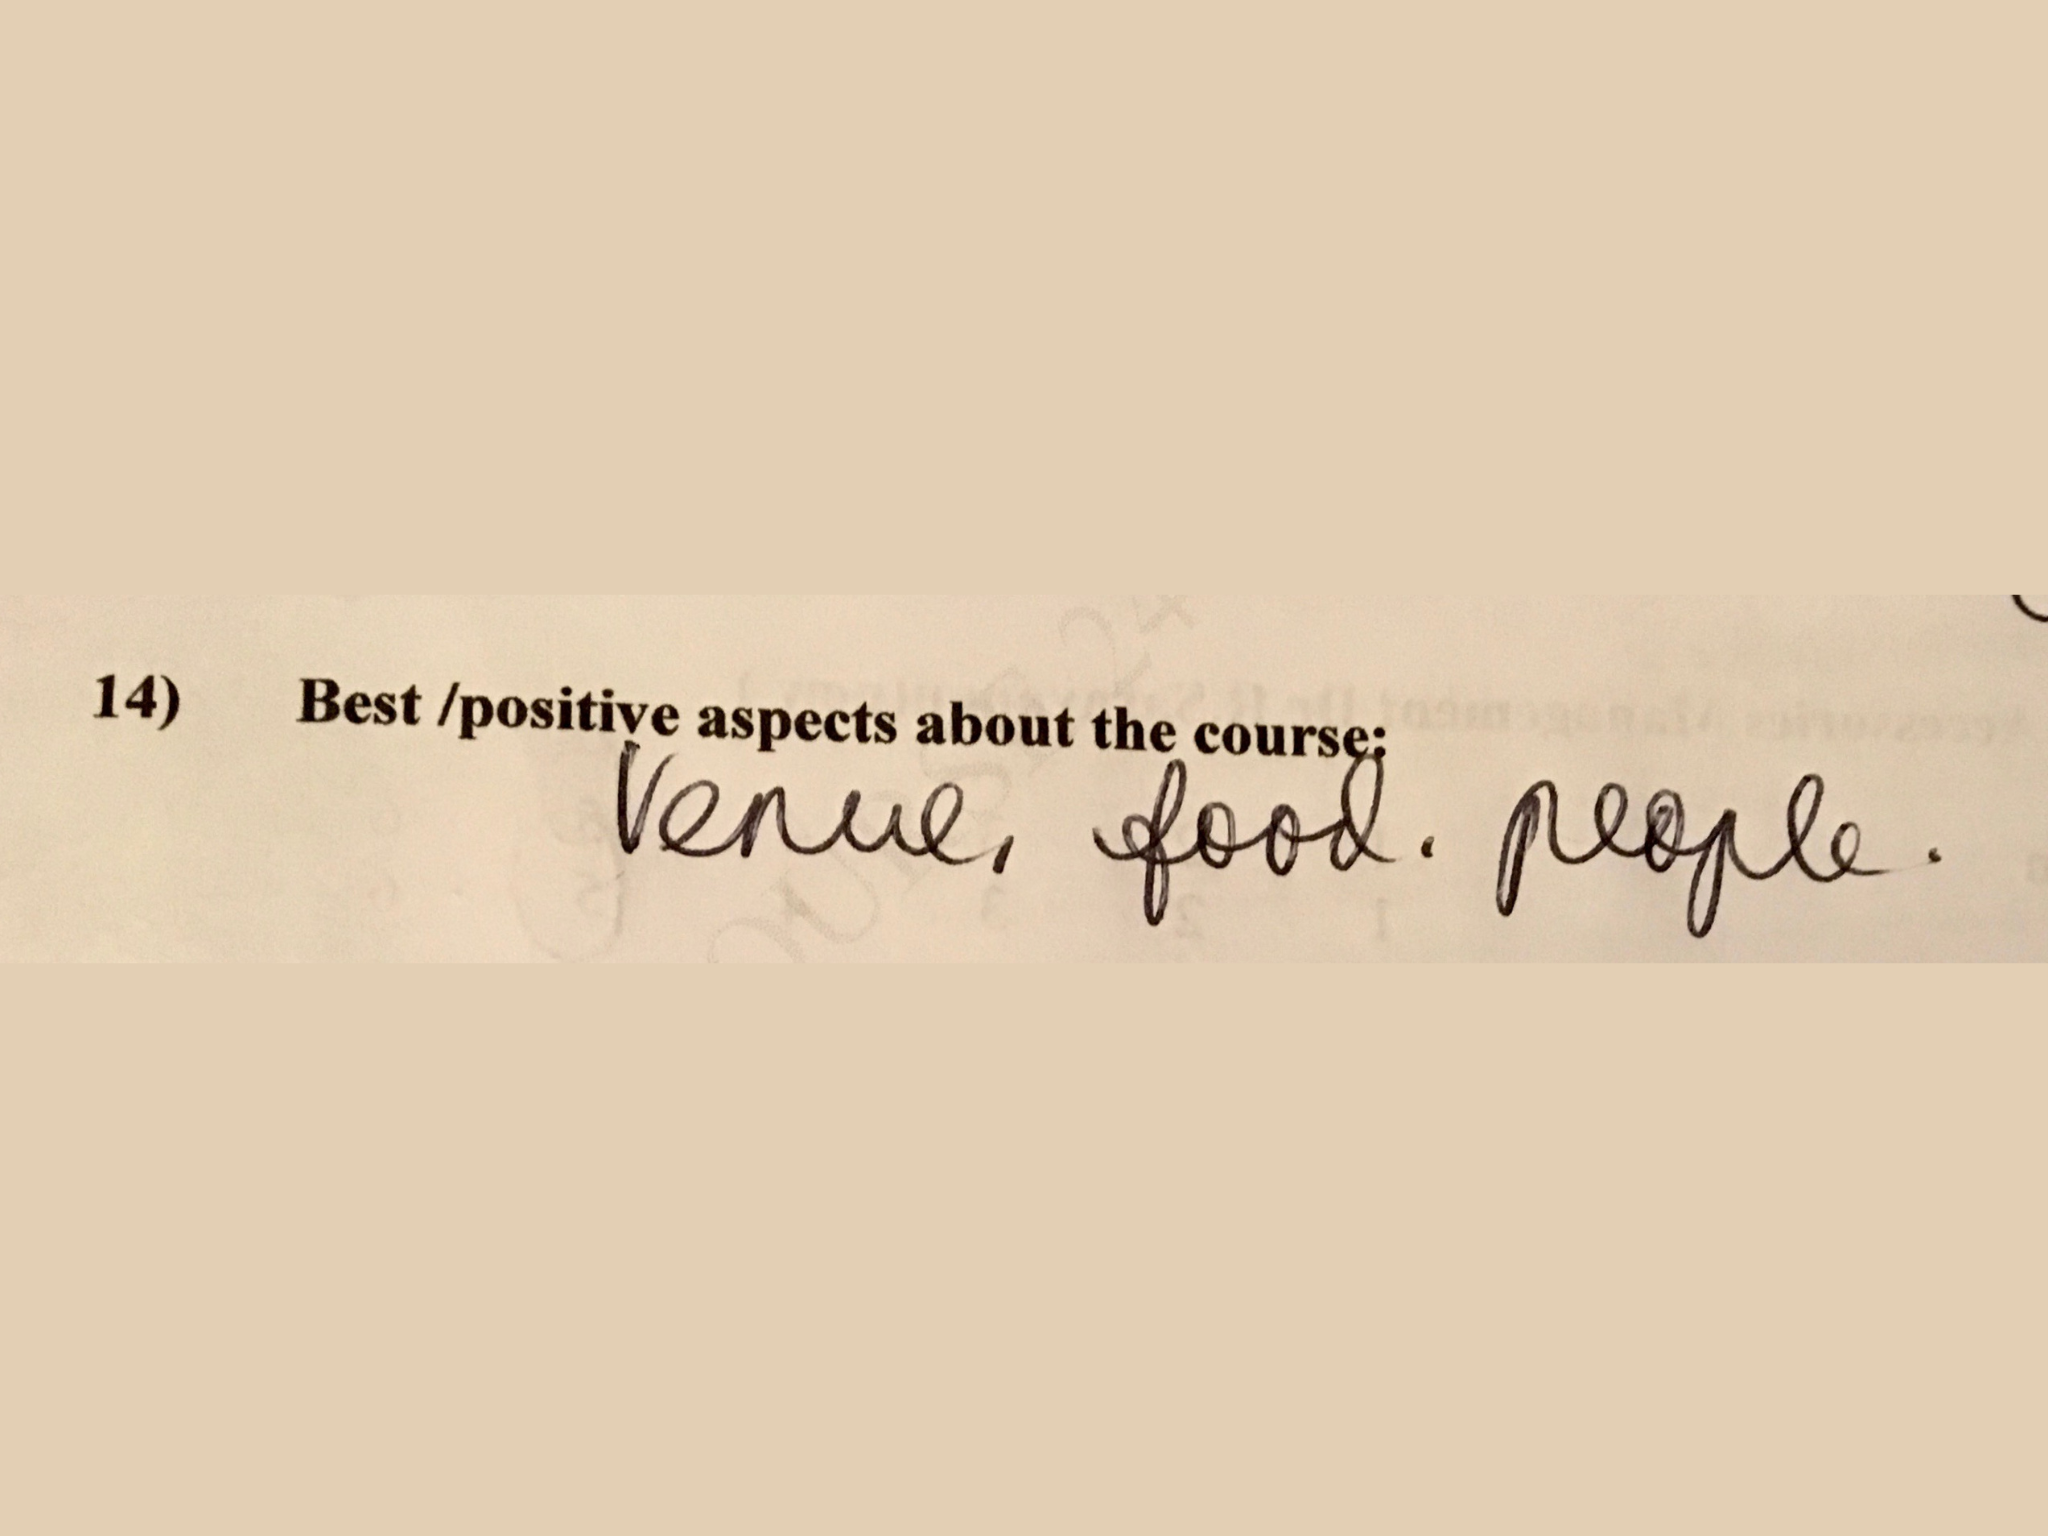 14) Best /positive aspects about the course:
Venue, food. people.